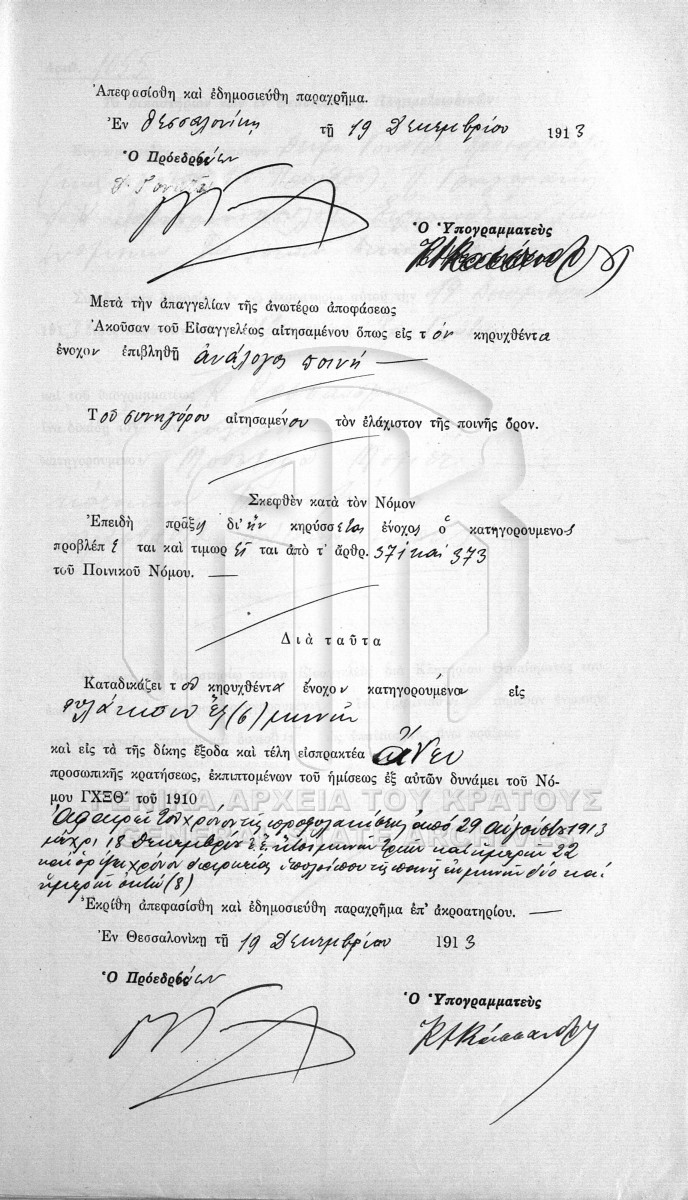 Ἀπεφασίσθη καὶ ἐδημοσιεύθη παραχρῆμα.
Ἐν Θεσσαλονίκῃ τῇ 19 Δεκεμβρίου 1913
Ὁ Πρόεδρεύων
Ὁ Ὑπογραμματεὺς
Μετὰ τὴν ἀπαγγελίαν τῆς ἀνωτέρω ἀποφάσεως
Ἀκοῦσαν τοῦ Εἰσαγγελέως αἰτησαμένου ὅπως εἰς τὸν κηρυχθέντα
ἔνοχον ἐπιβληθῇ ἀνάλογος ποινή —
Τοῦ συνηγόρου αἰτησαμένου τὸν ἐλάχιστον τῆς ποινῆς ὅρον.
Σκεφθὲν κατὰ τὸν Νόμον
Ἐπειδὴ πρᾶξις δι' ἣν κηρύσσεται ἔνοχος ὁ κατηγορούμενος
προβλέπεται καὶ τιμωρεῖται ἀπὸ τ' ἄρθρ. 371 καὶ 373
τοῦ Ποινικοῦ Νόμου. —
Διὰ ταῦτα
Καταδικάζει τὸν κηρυχθέντα ἔνοχον κατηγορούμενον εἰς
φυλάκισιν ἓξ (6) μηνῶν
καὶ εἰς τὰ τῆς δίκης ἔξοδα καὶ τέλη εἰσπρακτέα ἄνευ
προσωπικῆς κρατήσεως, ἐκπιπτομένων τοῦ ἡμίσεως ἐξ αὐτῶν δυνάμει τοῦ Νό-
μου ΓΧΞΘ' τοῦ 1910
ΓΕΝΙΚΑ ΑΡΧΕΙΑ ΤΟΥ ΚΡΑΤΟΥΣ
GENERAL STATE ARCHIVES
Ἀφαιρεῖ τὸν χρόνον τῆς προφυλακίσεως ἀπὸ 29 Αὐγούστου 1913
μέχρι 18 Δεκεμβρίου ἐ.ἔ. ἤτοι μηνῶν τριῶν καὶ ἡμερῶν 22
καὶ ὁρίζει χρόνον διαρκείας ὑπολοίπου τῆς ποινῆς ἐκ μηνῶν δύο καὶ
ἡμερῶν ὀκτώ (8)
Ἐκρίθη ἀπεφασίσθη καὶ ἐδημοσιεύθη παραχρῆμα ἐπ' ἀκροατηρίου. —
Ἐν Θεσσαλονίκῃ τῇ 19 Δεκεμβρίου 1913
Ὁ Πρόεδρεύων
Ὁ Ὑπογραμματεὺς